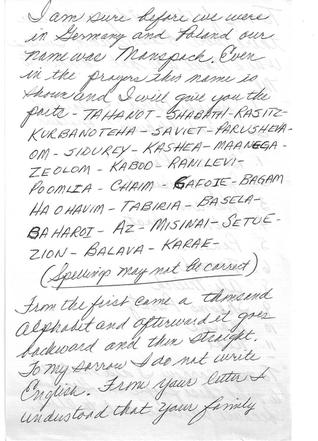 I am sure before we were
in Germany and Poland our
name was Manspach. Even
in the prayers this name is
shown and I will give you the
parts - TAHANOT - SHABATH - RASITZ -
KURBANOTEHA - SAVIET - PARUSHEVA -
OM - SIDUREY - KASHEA - MAANEGA -
ZEOLOM - KABOD - RANILEVI -
POOMLIA - CHAIM - GAFOIE - BAGAM
HAOHAVIM - TABIRIA - BASELA -
BAHAROI - AZ - MISINAI - SETUE -
ZION - BALAVA - KARAE -
(Spelling may not be correct)
From the first came a thousand
alphabet and afterward it goes
backward and then straight.
To my sorrow I do not write
English. From your letter I
understood that your family